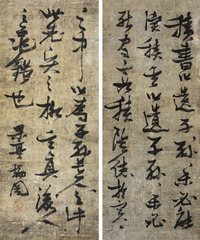 積書以遺子孫未必能
讀積金以遺子孫未必
能守不如積陰德於冥冥
之中以為子孫長久之計
此先賢之格言後人
之龜鑑也